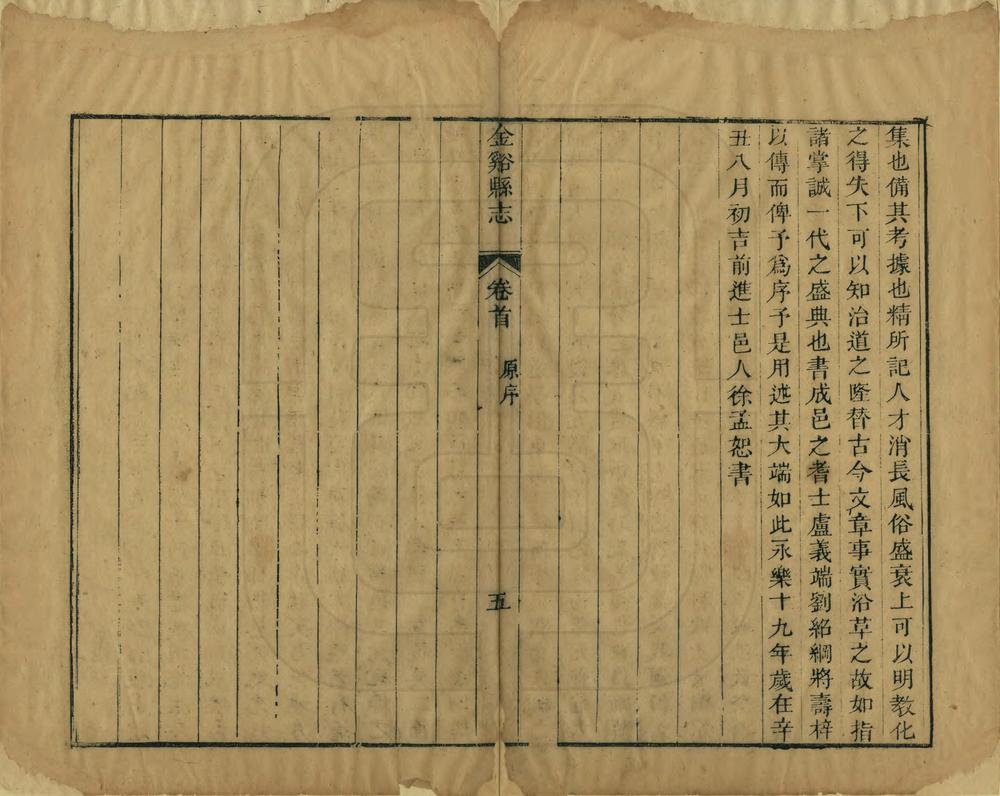 集也備其考據也精所記人才消長風俗盛衰上可以明教化
之得失下可以知治道之隆替古今文章事實沿革之故如指
諸掌誠一代之盛典也書成邑之耆士盧義端劉紹綱將壽梓
以傳而俾予爲序予是用述其大端如此永樂十九年歲在辛
丑八月初吉前進士邑人徐孟恕書
金谿縣志
卷首
原序
五